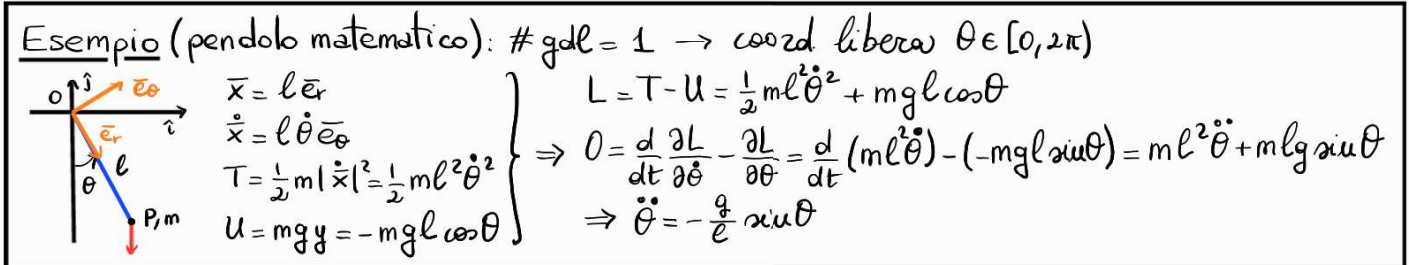 Esempio (pendolo matematico): # gdl = 1 → coord libera θ ∈ [0, 2π)
O ĵ ē_θ î ē_r θ l P, m
x̄ = l ē_r
ẋ̄ = l θ̇ ē_θ
T = 1/2 m |ẋ̄|² = 1/2 m l² θ̇²
U = mgy = -mgl cosθ
⇒
L = T - U = 1/2 m l² θ̇² + mgl cosθ
0 = d/dt ∂L/∂θ̇ - ∂L/∂θ = d/dt (m l² θ̇) - (-mgl sinθ) = m l² θ̈ + mlg sinθ
⇒ θ̈ = - g/l sinθ